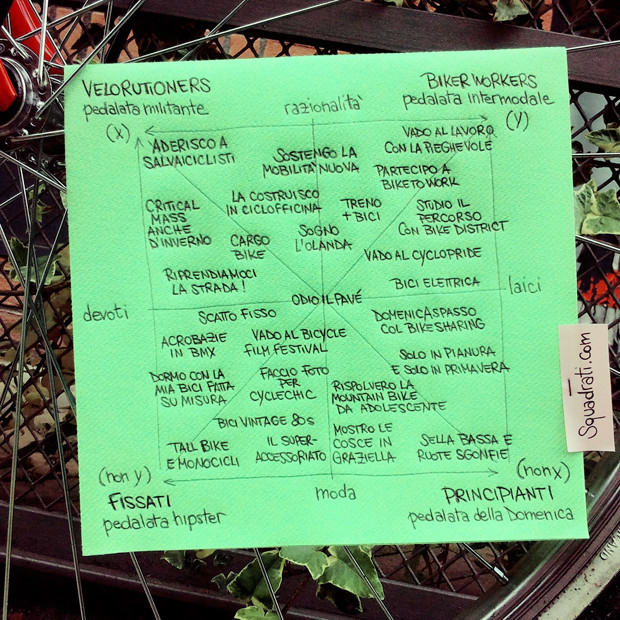 VELORUTIONERS
pedalata militante
(x)
razionalità
BIKER WORKERS
pedalata intermodale
(y)
ADERISCO A
SALVAICICLISTI
SOSTENGO LA
MOBILITA' NUOVA
VADO AL LAVORO
CON LA PIEGHEVOLE
PARTECIPO A
BIKETOWORK
CRITICAL
MASS
ANCHE
D'INVERNO
LA COSTRUISCO
IN CICLOFFICINA
CARGO
BIKE
TRENO
+ BICI
SOGNO
L'OLANDA
STUDIO IL
PERCORSO
CON BIKE DISTRICT
VADO AL CYCLOPRIDE
RIPRENDIAMOCI
LA STRADA!
BICI ELETTRICA
devoti
ODIO IL PAVÉ
laici
SCATTO FISSO
ACROBAZIE
IN BMX
VADO AL BICYCLE
FILM FESTIVAL
DOMENICA SPASSO
COL BIKESHARING
SOLO IN PIANURA
E SOLO IN PRIMAVERA
DORMO CON LA
MIA BICI FATTA
SU MISURA
FACCIO FOTO
PER
CYCLECHIC
RISPOLVERO LA
MOUNTAIN BIKE
DA ADOLESCENTE
BICI VINTAGE 80s
TALL BIKE
E MONOCICLI
IL SUPER-
ACCESSORIATO
MOSTRO LE
COSCE IN
GRAZIELLA
SELLA BASSA E
RUOTE SGONFIE
(non y)
FISSATI
pedalata hipster
moda
(non x)
PRINCIPIANTI
pedalata della Domenica
Squadrati.com